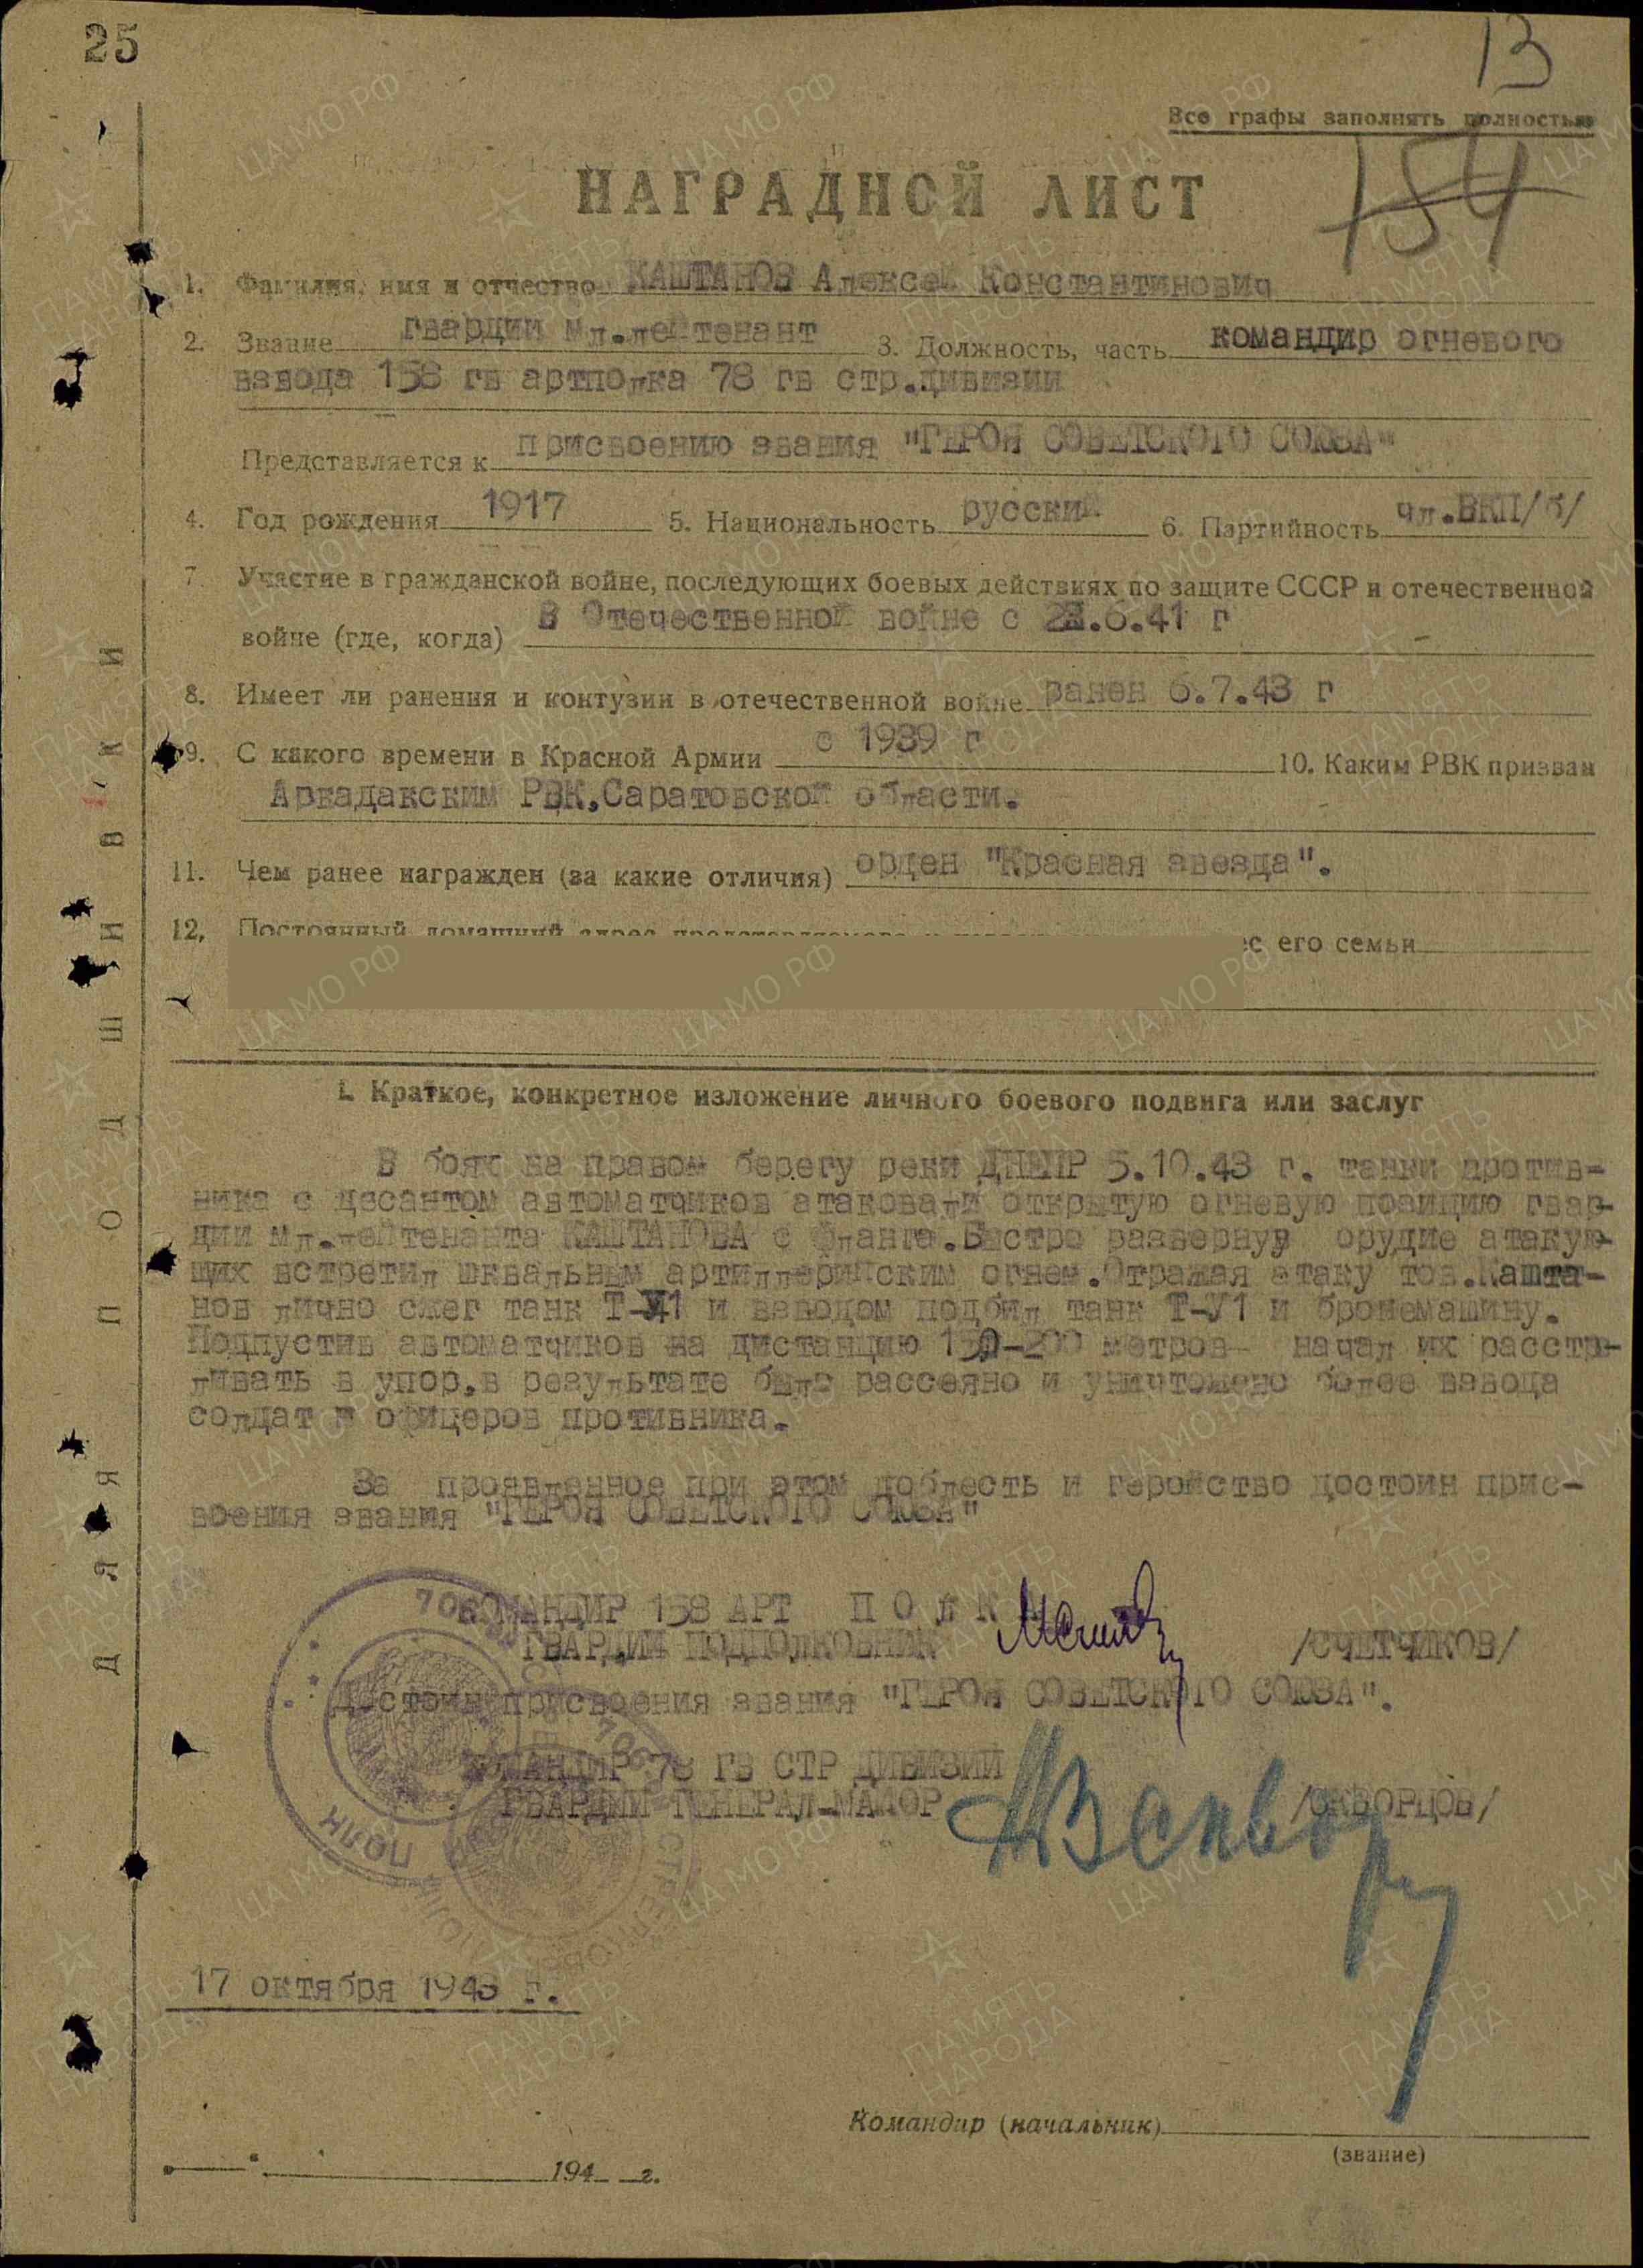 25
13
Все графы заполнять полностью
154
НАГРАДНОЙ ЛИСТ
1. Фамилия, имя и отчество КАШТАНОВ Алексей Константинович
2. Звание гвардии мл.лейтенант 3. Должность, часть командир огневого
взвода 158 гв артполка 78 гв стр.дивизии
Представляется к присвоению звания "ГЕРОЯ СОВЕТСКОГО СОЮЗА"
4. Год рождения 1917 5. Национальность русский 6. Партийность чл.ВКП/б/
7. Участие в гражданской войне, последующих боевых действиях по защите СССР и отечественной
войне (где, когда) В Отечественной войне с 22.6.41 г
8. Имеет ли ранения и контузии в отечественной войне ранен 6.7.43 г
9. С какого времени в Красной Армии с 1939 г 10. Каким РВК призван
Аркадакским РВК,Саратовской области.
11. Чем ранее награжден (за какие отличия) орден "Красная звезда".
12. Постоянный домашний адрес его семьи
1. Краткое, конкретное изложение личного боевого подвига или заслуг
В боях на правом берегу реки ДНЕПР 5.10.43 г. танки против-
ника с десантом автоматчиков атаковали открытую огневую позицию гвар-
дии мл.лейтенанта КАШТАНОВА с фланга.Быстро развернув орудие атакую-
щих встретил шквальным артиллерийским огнем.Отражая атаку тов.Кашта-
нов лично сжег танк Т-У1 и взводом подбил танк Т-У1 и бронемашину.
Подпустив автоматчиков на дистанцию 150-200 метров- начал их расстре-
ливать в упор,в результате было рассеяно и уничтожено более взвода
солдат и офицеров противника.
За проявленное при этом доблесть и геройство достоин прис-
воения звания "ГЕРОЯ СОВЕТСКОГО СОЮЗА"
КОМАНДИР 158 АРТ ПОЛК
ГВАРДИИ ПОДПОЛКОВНИК /СЧЕТЧИКОВ/
Достоин присвоения звания "ГЕРОЯ СОВЕТСКОГО СОЮЗА".
КОМАНДИР 78 ГВ СТР ДИВИЗИИ
ГВАРДИИ ГЕНЕРАЛ-МАЙОР /СКВОРЦОВ/
17 октября 1943 г.
Командир (начальник)
(звание)
194 г.
ДЛЯ ПОДШИВКИ
ПОЛК
ПАМЯТЬ НАРОДА
ЦА МО РФ